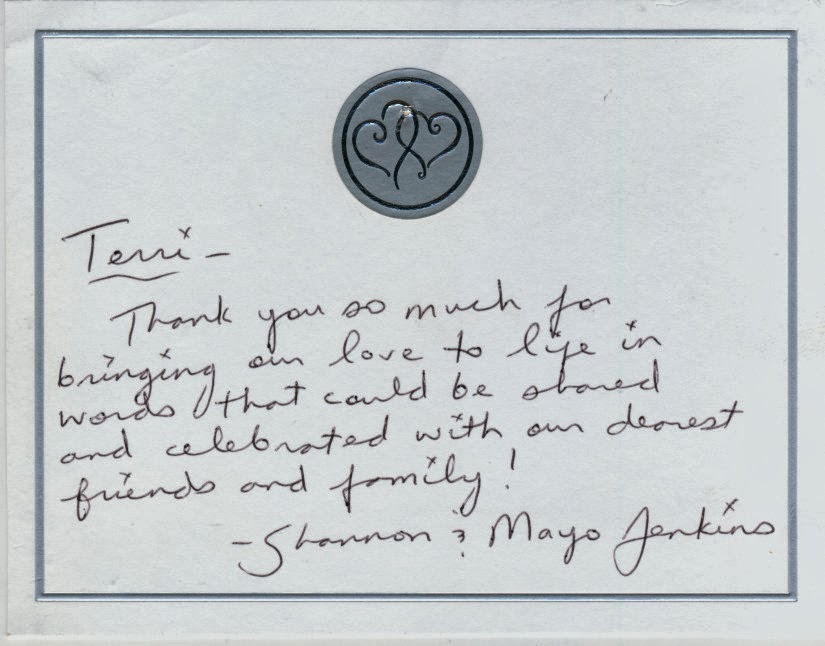 Terri -
Thank you so much for
bringing our love to life in
words that could be shared
and celebrated with our dearest
friends and family!
- Shannon & Mayo Jenkins